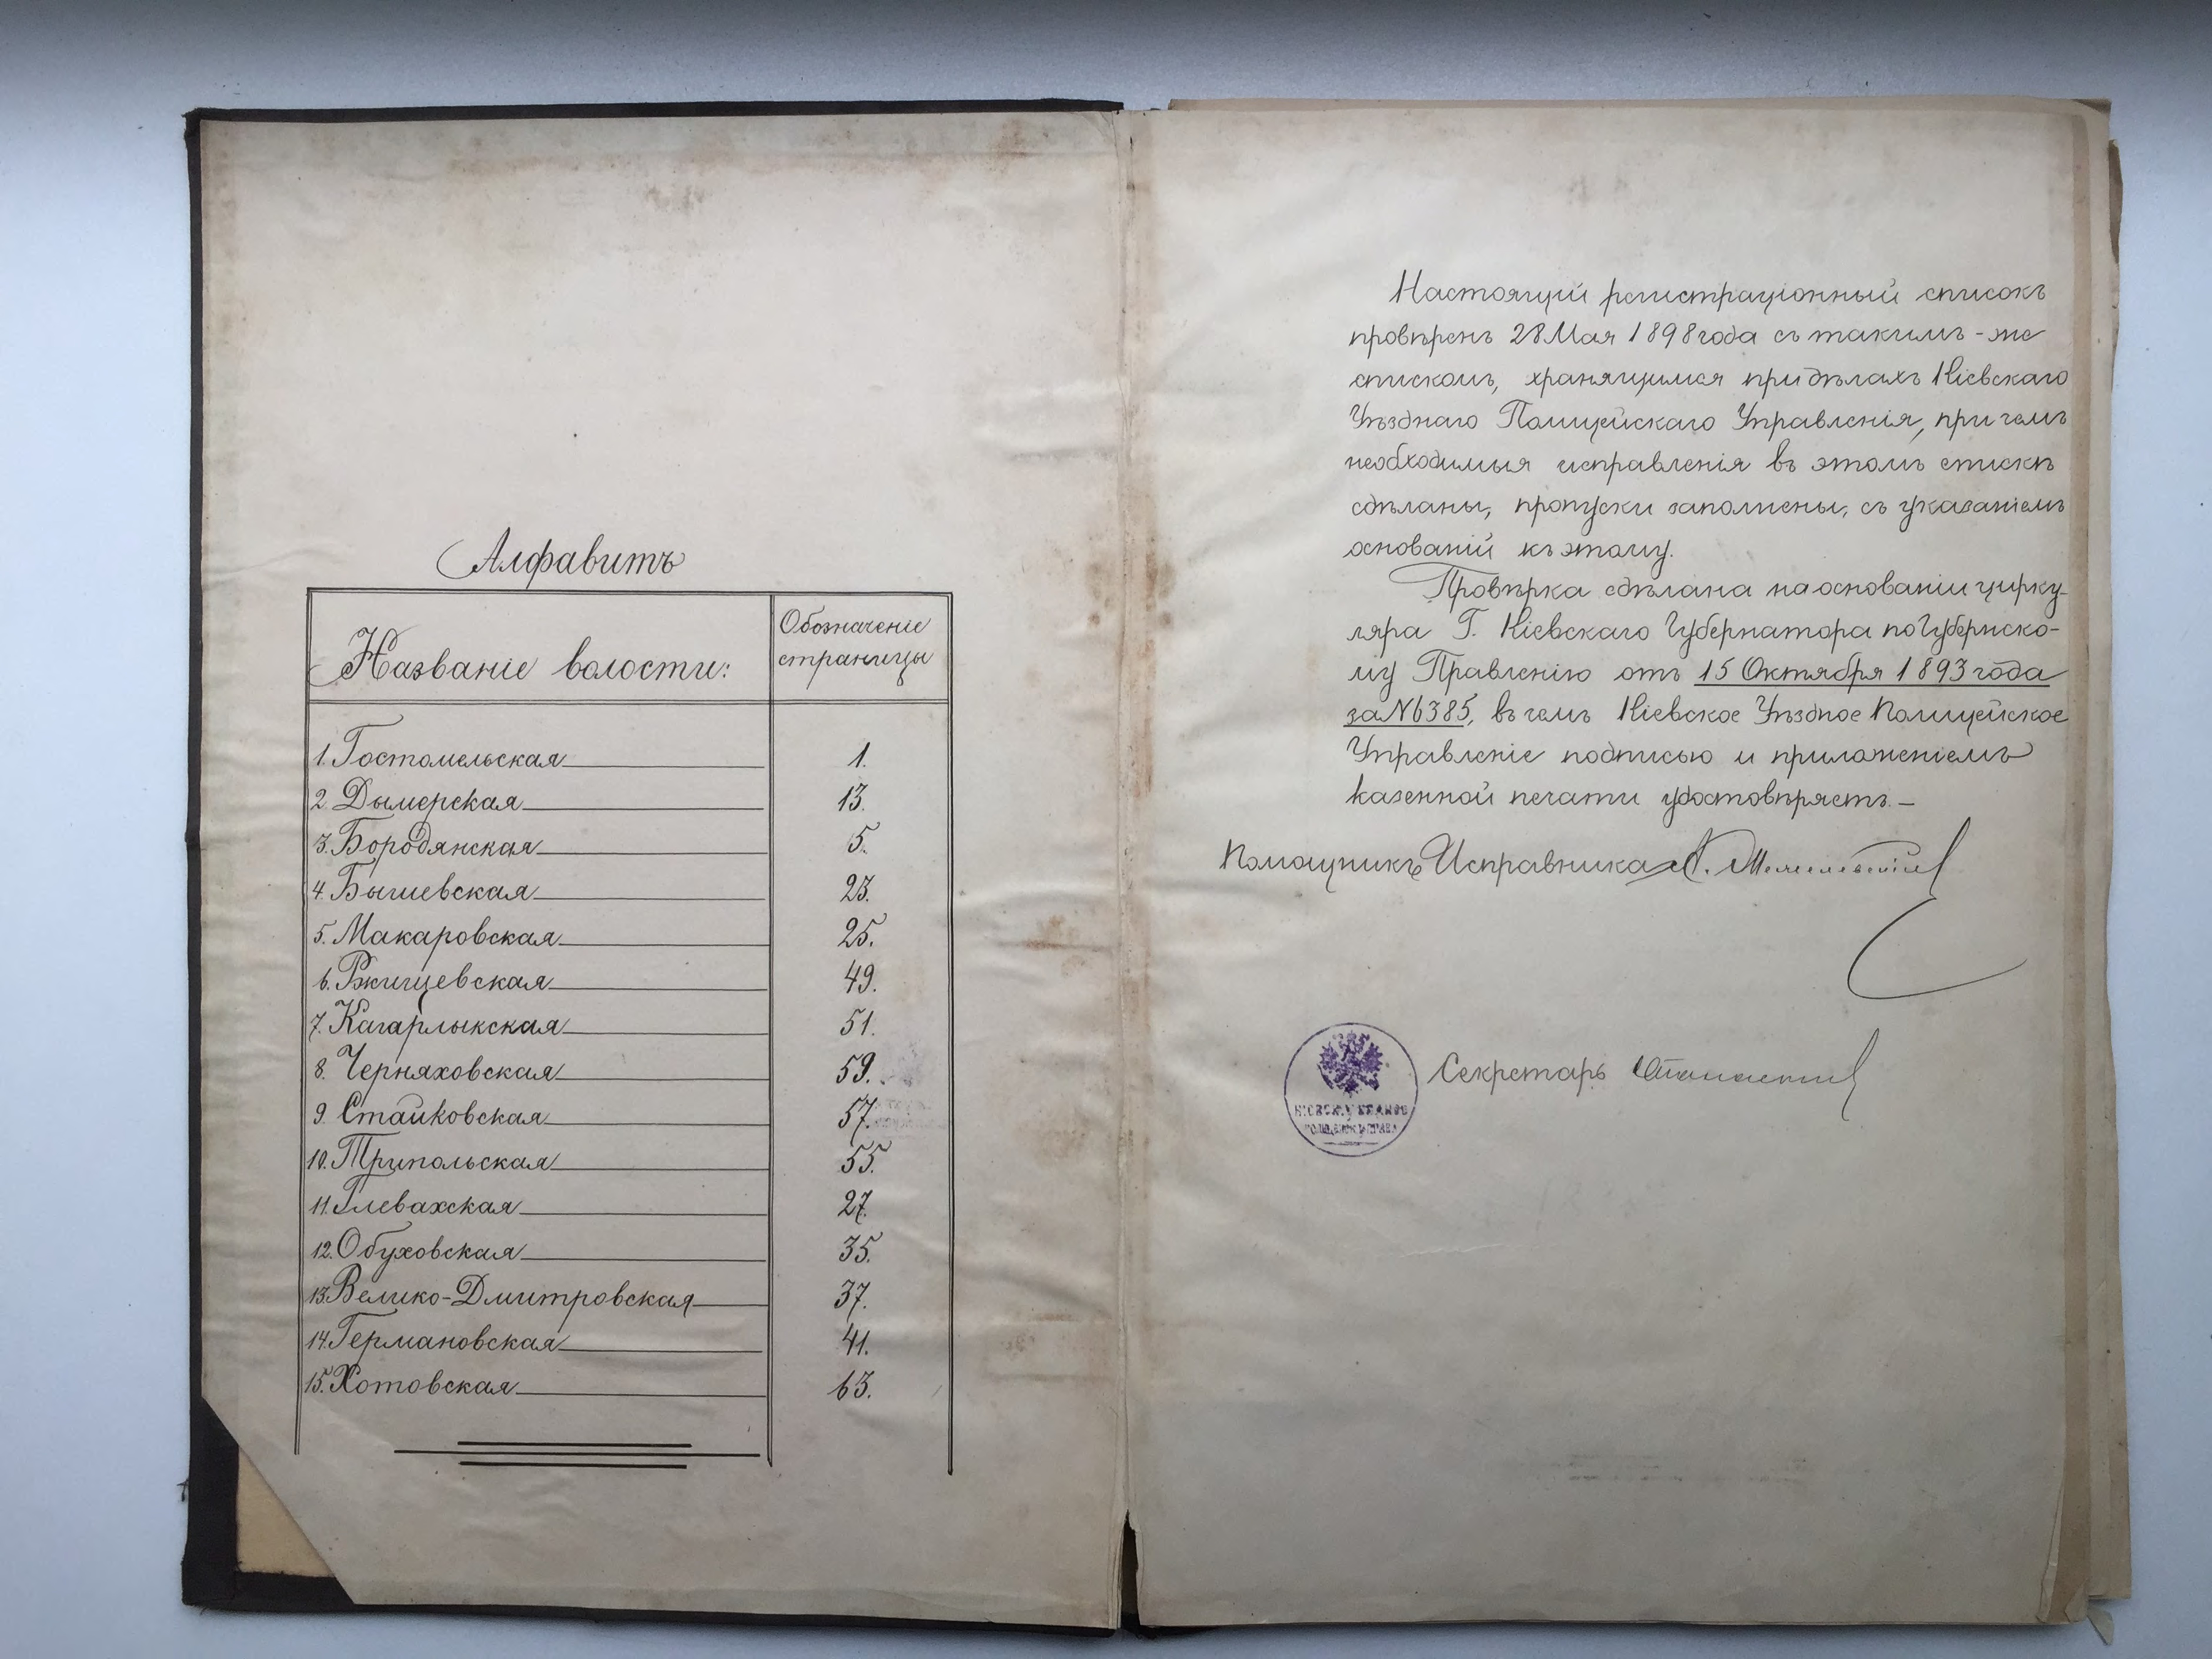 Алфавитъ
Названіе волости:
Обозначеніе
страницы
1. Гостомельская 1.
2. Дымерская 13.
3. Бородянская 5.
4. Бышевская 23.
5. Макаровская 25.
6. Ржищевская 49.
7. Кагарлыкская 51.
8. Черняховская 59.
9. Стайковская 57.
10. Трипольская 55.
11. Глевахская 27.
12. Обуховская 35.
13. Велико-Дмитровская 37.
14. Германовская 41.
15. Хотовская 63.
Настоящій регистраціонный списокъ
провѣренъ 28 Мая 1898 года съ такимъ-же
спискомъ, хранящимся при дѣлахъ Кіевскаго
Уѣзднаго Полицейскаго Управленія, при чемъ
необходимыя исправленія въ этомъ спискѣ
сдѣланы, пропуски заполнены, съ указаніемъ
основаній къ этому.
Провѣрка сдѣлана на основаніи цирку-
ляра Г. Кіевскаго Губернатора по Губернско-
му Правленію отъ 15 Октября 1893 года
за № 6385, въ чемъ Кіевское Уѣздное Полицейское
Управленіе подписью и приложеніемъ
казенной печати удостовѣряетъ.—
Помощникъ Исправника
Секретарь